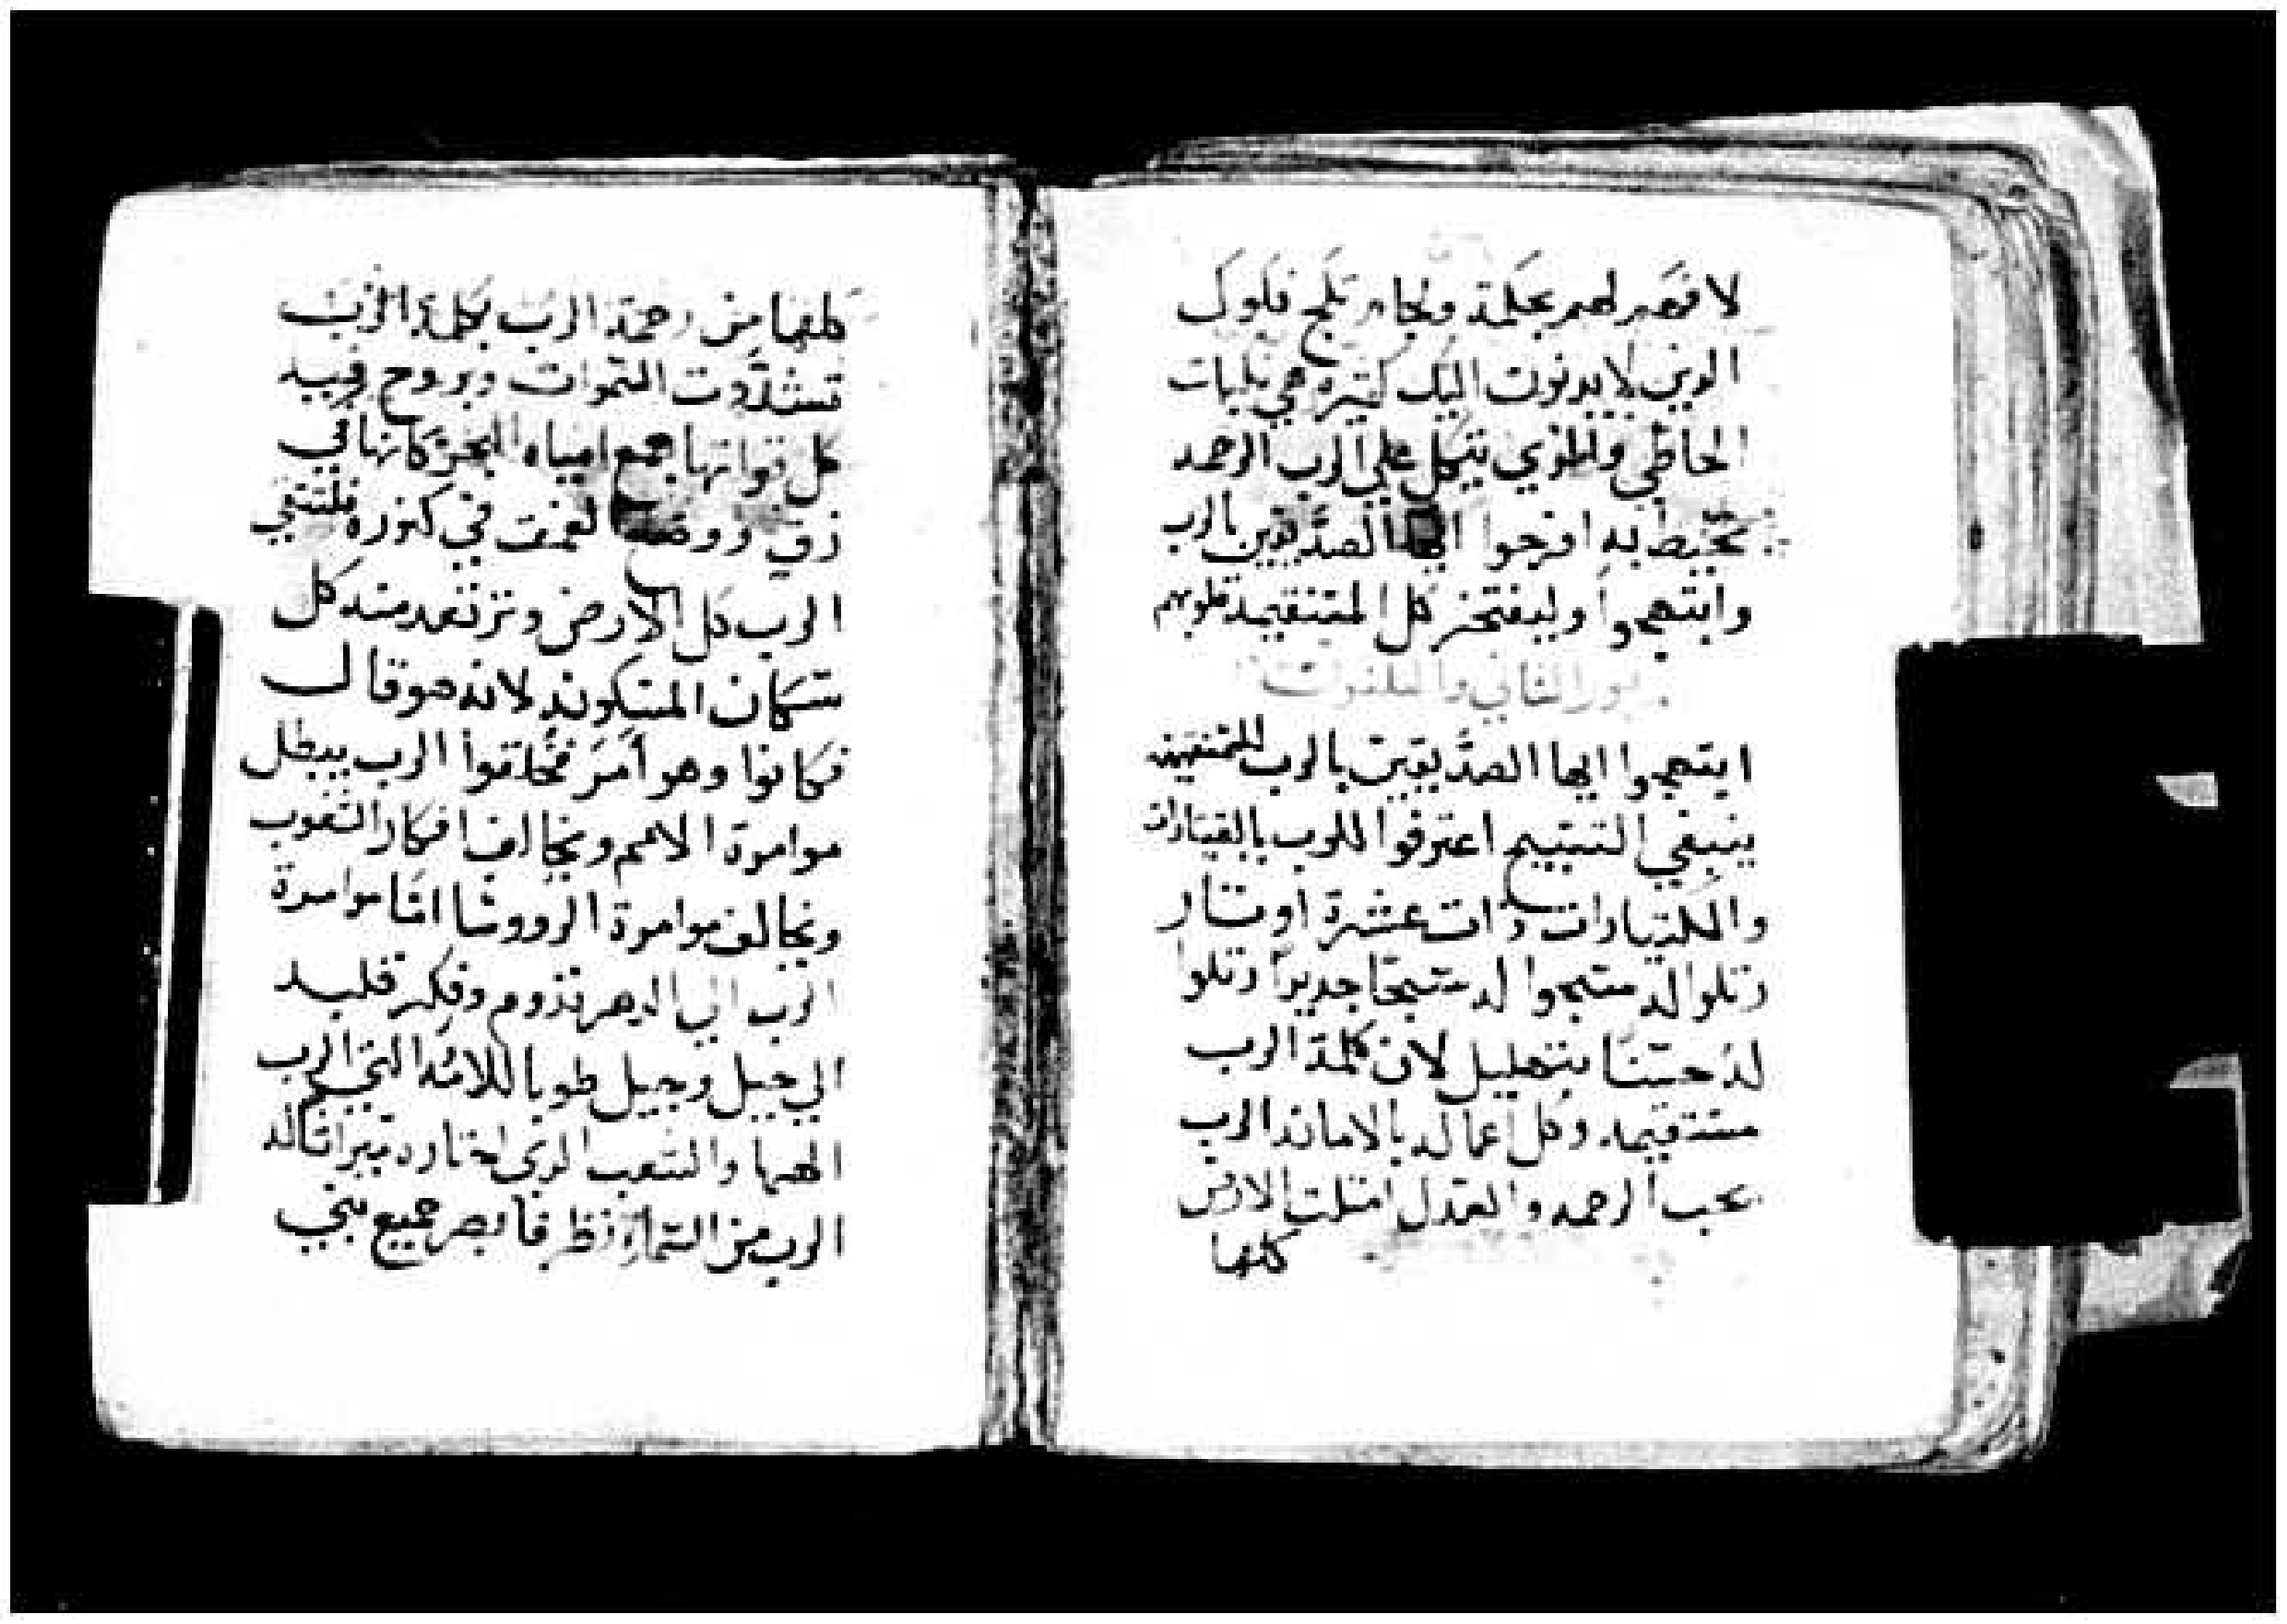 لا فهم لهم بحكمة ولجام تلجم فكوك
الذين لا يدنون اليك كثيرة هي بليات
الخاطي والذي يتكل علي الرب الرحمه
تحيط به افرحوا ايها الصدّيقين بالرب
وابتهجوا وليفتخر كل المستقيمة قلوبهم
الثاني والثلثون
ابتهجوا ايها الصدّيقين بالرب للمستقيمين
ينبغي التسبيح اعترفوا للرب بالقيتارات
والكنيارات ذات عشرة اوتار
رتلوا له سبحوا له تسبيحًا جديدًا رتلوا
له حسنًا بتهليل لان كلمة الرب
مستقيمه وكل اعماله بالامانه الرب
يحب الرحمه والعدل امتلت الارض
كلها
كلها من رحمة الرب بكلمة الرب
تشدّدت السموات وبروح فيه
كل قواتها جمع امياه البحر كانها في
زق ووضع الغمق في كنوزه فلتتقي
الرب كل الارض وتزتعد منه كل
سكان المسكونه لانه هو قال
فكانوا وهو أمَرَ فخلقوا الرب يبطل
موامرة الامم ويخالف افكار الشعوب
ويخالف موامرة الرووسا امّا موامرة
الرب الي الدهر تدوم وفكر قلبه
الي جيل وجيل طوبا للامّه التي الرب
الهها والشعب الذي اختاره ميراثا له
الرب من السماء نظر فابصر جميع بني